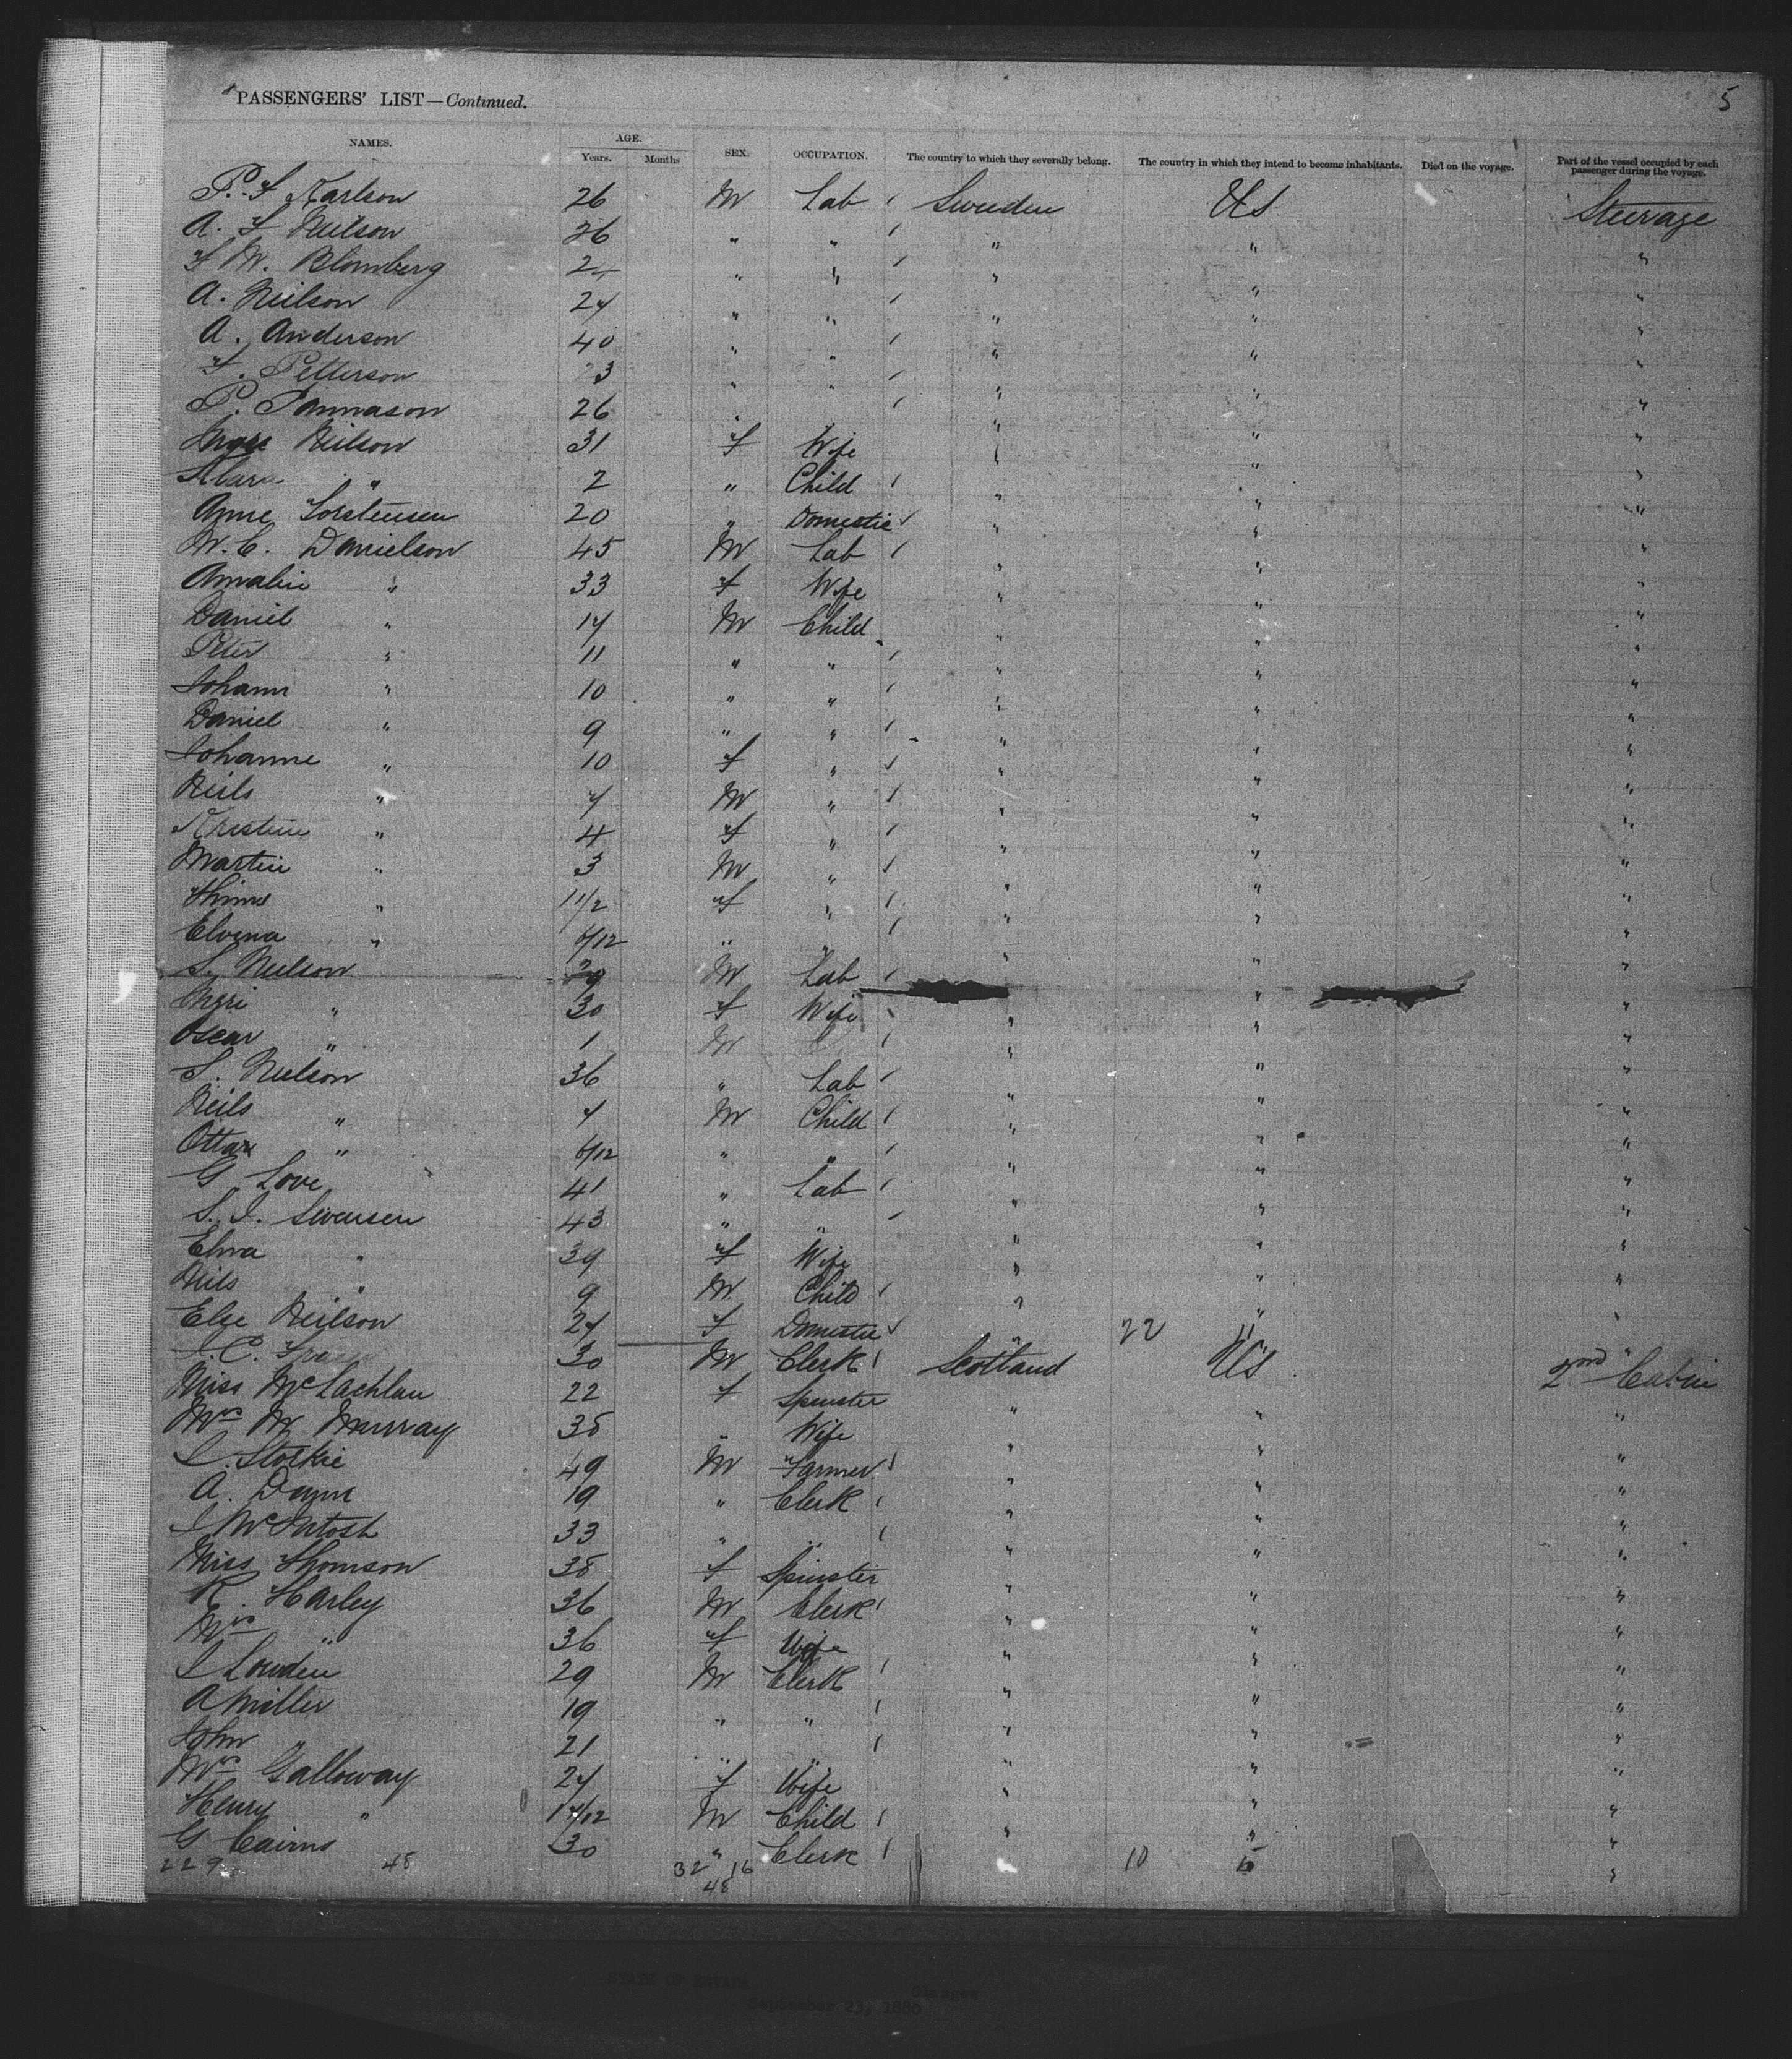 PASSENGERS' LIST—Continued. 5
NAMES. AGE. Years. Months SEX. OCCUPATION. The country to which they severally belong. The country in which they intend to become inhabitants. Died on the voyage. Part of the vessel occupied by each passenger during the voyage.
P. F Karlson 26 M Lab Sweden US Steerage
A. F Neilson 26 " " " " "
F M. Blomberg " " " " "
A. Neilson 24 " " " " "
A. Anderson 40 " " " " "
F. Petterson " " " " "
P. 26 " " " "
Neilson 31 f Wife " " "
Klara " 2 " Child " " "
Anne Torstensen 20 " Domestic " " "
M. C. Danielson 45 M Lab " " "
Amalie " 33 f Wife " " "
Daniel " 14 M Child " " "
Peter " 11 " " " " "
Johann " 10 " " " " "
Daniel " 9 " " " " "
Johanne " 10 f " " " "
Neils " 7 M " " " "
Kristine " 4 f " " " "
Martin " 3 M " " " "
" 1 1/2 f " " " "
Elvena " 6/12 " " " "
S. Neelson M Lab " "
" 30 f Wife " " "
Oscar " 1 M " " "
S. Neelson 36 " Lab " " "
Neils " 7 M Child " " "
" 6/12 " " " " "
G Love 41 " Lab " " "
S. J. Swensen 43 " " " " "
Elna " 39 f Wife " " "
Neils " 9 M Child " " "
Else Neilson 24 f Domestic " 22 " "
30 M Clerk Scotland US 2nd Cabin
Miss McLachlan 22 f Spinster " " "
Mrs M Murray 35 " Wife " " "
Stockie 49 M Farmer " " "
A. Dunn 19 " Clerk " " "
J McIntosh 33 " " " " "
Miss Thomson 35 f Spinster " " "
R. Harley 36 M Clerk " " "
Mrs " 36 f Wife " " "
J Lowden 29 M Clerk " " "
A Miller 19 " " " " "
John 21 " " " " "
Mrs Galloway 24 f Wife " " "
Henry " M Child " " "
G Cairns 30 " Clerk " " "
229 48 32 16 10
48
STATE OF NEVADA Glasgow
September 23, 1886